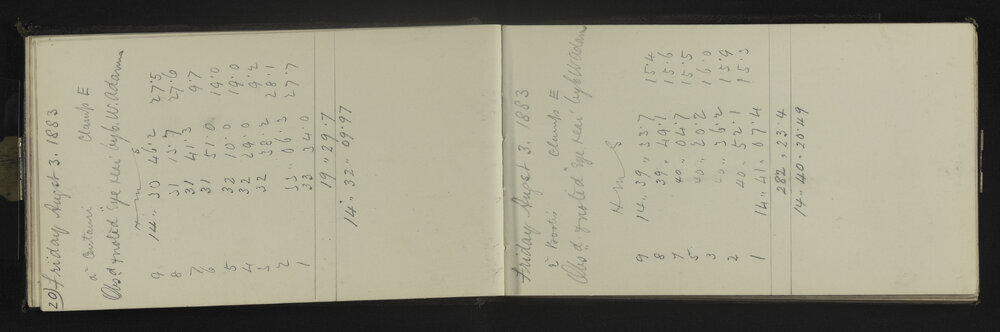 20) Friday August 3. 1883
Centauri Clamp E
Obsd & noted "Eye & Ear" by C. W. Adams
m s
9 14 „ 30 46.2 27.5
8 31 13.7 27.6
7 31 41.3 9.7
6 31 51.0 19.0
5 32 10.0 19.0
4 32 29.0 9.2
3 32 38.2 28.1
2 33 06.3 27.7
1 33 34.0
19 „ 29.7
14 „ 32 „ 09.97
Friday August 3. 1883
ε Bootis Clamp E
Obsd & noted "Eye & Ear" by C. W. Adams
H m S
9 14 „ 39 „ 33.7 15.4
8 39 „ 49.1 15.6
7 40 „ 04.7 15.5
5 40 „ 20.2 16.0
3 40 „ 36.2 15.9
2 40 „ 52.1 15.3
1 14 „ 41 „ 07.4
282 „ 23.4
14 „ 40 „ 20.49